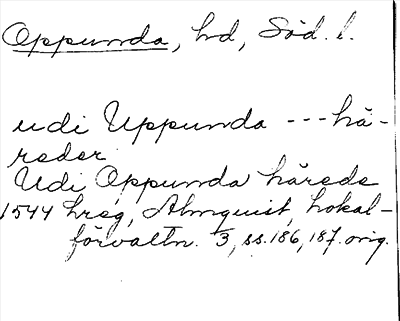 Oppunda, hd, Söd. l.
udi Uppunda --- hä-
reder
Udi Oppunda härede
1544 hreg, Almquist, Lokal-
förvaltn. 3, ss. 186, 187. orig.